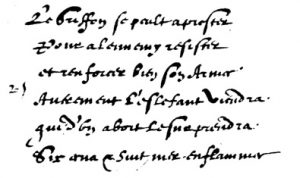 Le Griffon se peult aprester
Pour a lennemy resister
et renforcer bien son Armee.
Autrement L'eslefant Viendra.
qui d'vn abort Le surprendra.
Six & huit mer enflammee